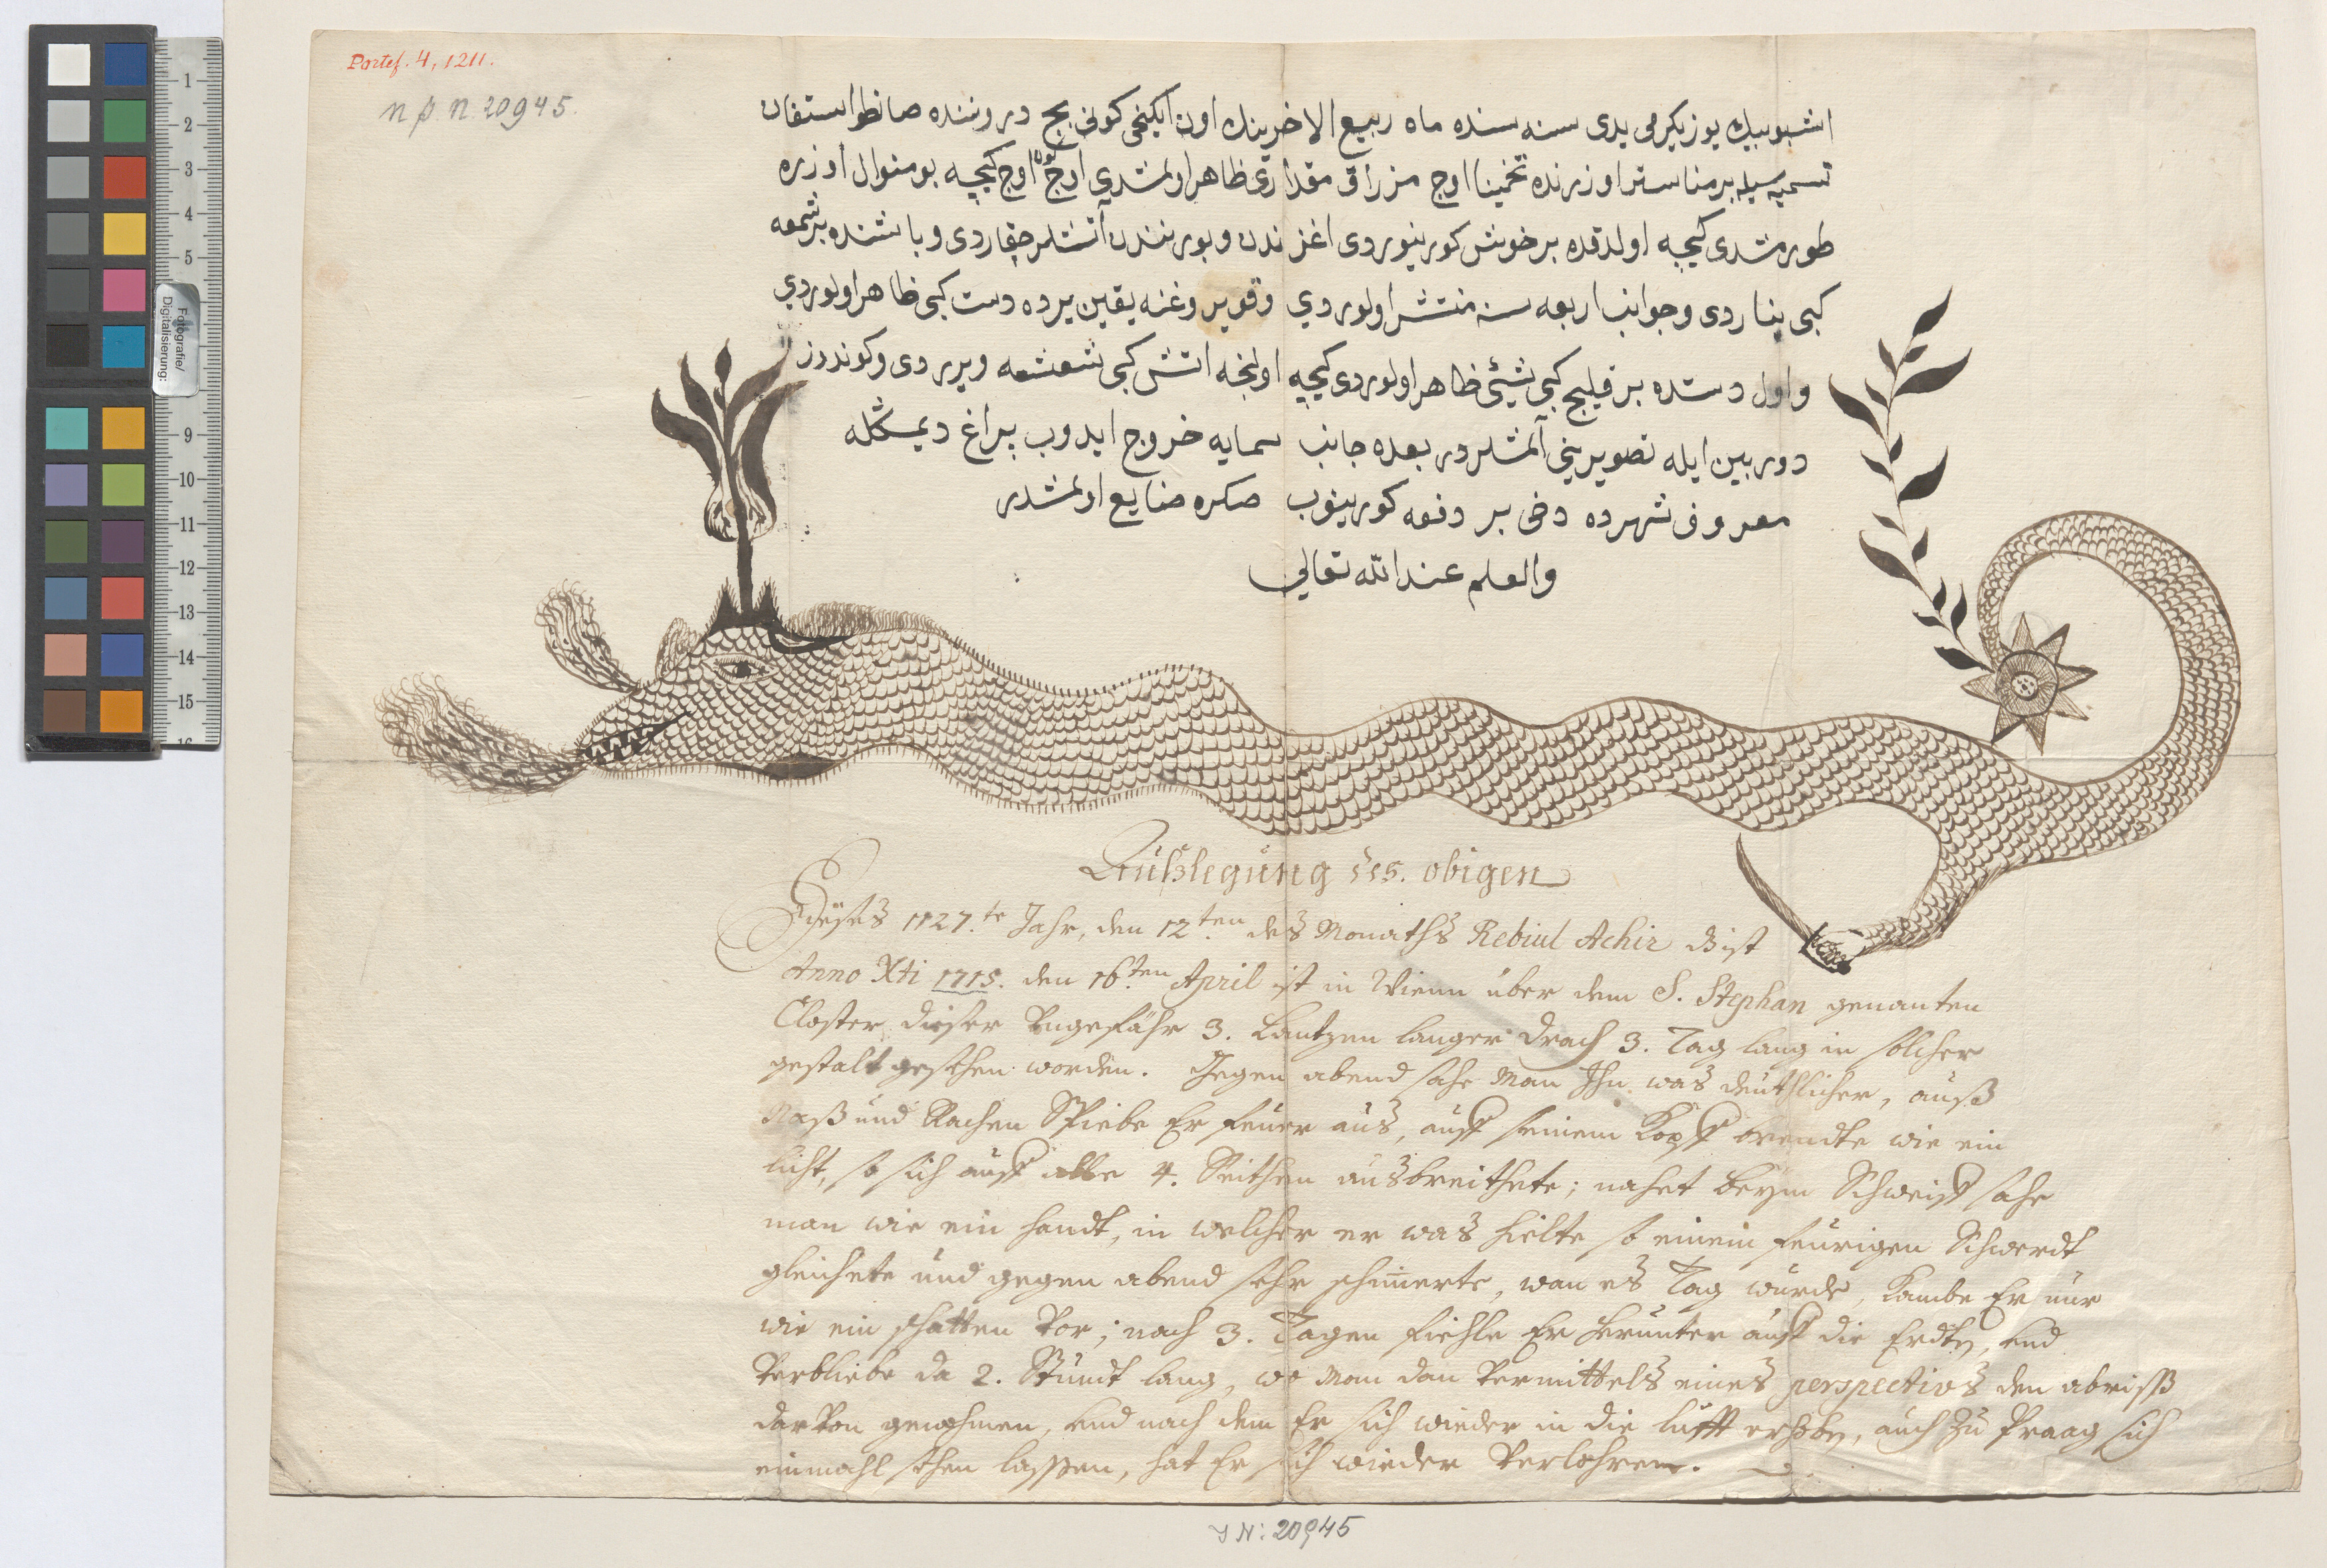 Portef. 4, 1211.
n p. n. 20945.
اشبو بیك یوز یكرمی یدی سنه سنده ماه ربیع الاخرینك اون ایكنجی كونی بج درونده صانطو استفان
تسمیه سیله بر مناستر اوزرنده تخمینا اوج مزراق مقداری ظاهر اولمشدی اوج كون اوج كیجه بو منوال اوزره
طورمشدی كیجه اولدقده بر خوش كورینوردی اغزندن و بورنندن آتشلر چقاردی و باشنده بر شمعه
كبی یناردی و جوانب اربعه سنه منتشر اولوردي و قویروغنه یقین یرده دست كبی ظاهر اولوردي
و اول دستده بر قلیج كبی شیئ ظاهر اولوردی كیجه اولنجه اتش كبی شعشعه ویرردی و كوندوز
دوربین ایله تصویرینی آلمشلردر بعده جانب سمایه خروج ایدوب پراغ دیمكله
معروف شهرده دخی بر دفعه كورینوب صكره ضایع اولمشدر
والعلم عند الله تعالي
Außlegung des obigen
Dieses 1127.te Jahr, den 12ten des Monaths Rebiul Achir dist
Anno Xti 1715. den 16ten April ist in Wienn über dem S. Stephan genanten
Closter dieser Vngefähr 3. Lantzen langer Drach 3. Tag lang in solcher
gestalt gesehen worden. Gegen abend sahe Man Ihn was deuthlicher, auß
Naß und Rachen Spiebe Er feuer aus, auff seinem Kopff brendte wie ein
licht, so sich auff alle 4. Seithen ausbreithete; nahet beym Schweiff sahe
man wie ein handt, in welcher er was hielte so einem feurigen Schwerdt
gleichete und gegen abend sehr schimerte, wan es Tag wurde, Kambe Er nur
wie ein schatten Vor; nach 3. Tagen fiehle Er herunter auff die Erdten, und
Verbliebe da 2. Stundt lang, wo Man dan Vermittels eines perspectivs den abriss
darVon genohmen, und nach dem Er sich wieder in die lufft erhoben, auch zu Praag sich
einmahl sehen lassen, hat Er sich wieder Verlohren.
J N: 20945
Fotografie/
Digitalisierung:
1
2
3
4
5
9
10
11
12
13
14
15